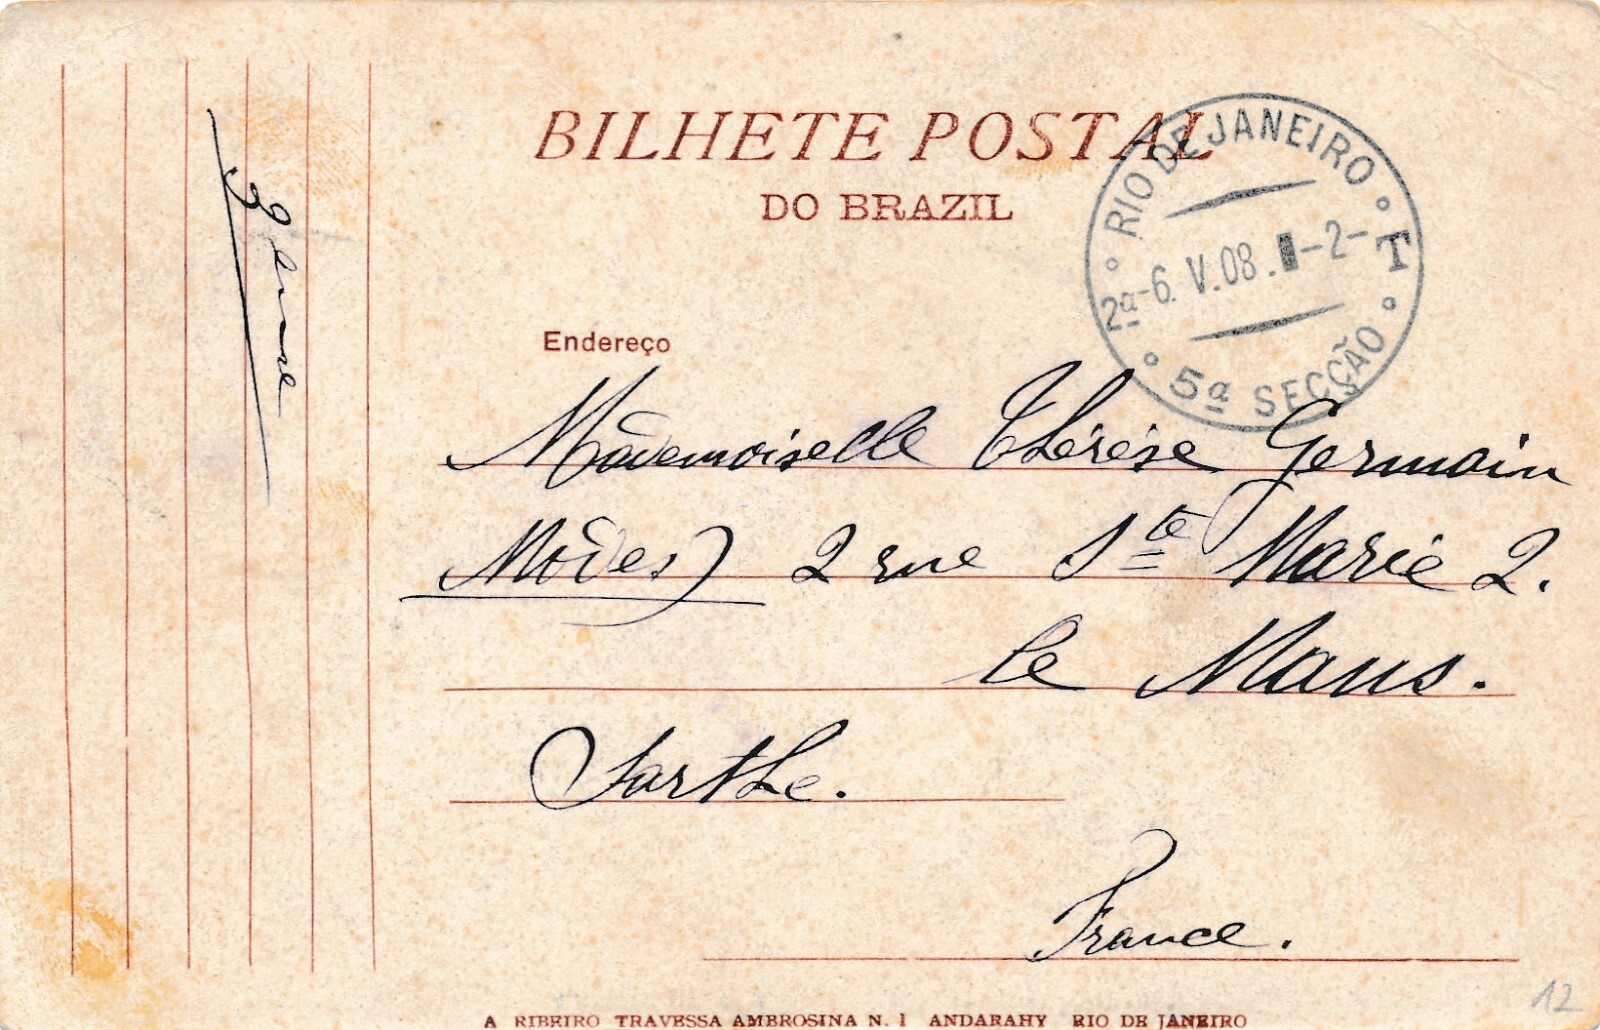 BILHETE POSTAL
DO BRAZIL
RIO DE JANEIRO
2ª-6. V. 08. -2- T
5ª SECÇÃO
Endereço
Mademoiselle Thérèse Germain
Modes) 2 rue Ste Marie 2.
le Mans.
Sarthe.
France.
A RIBEIRO TRAVESSA AMBROSINA N. 1 ANDARAHY RIO DE JANEIRO
12